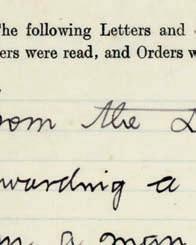 The following Letters and
ers were read, and Orders w
om the
warding a
a man